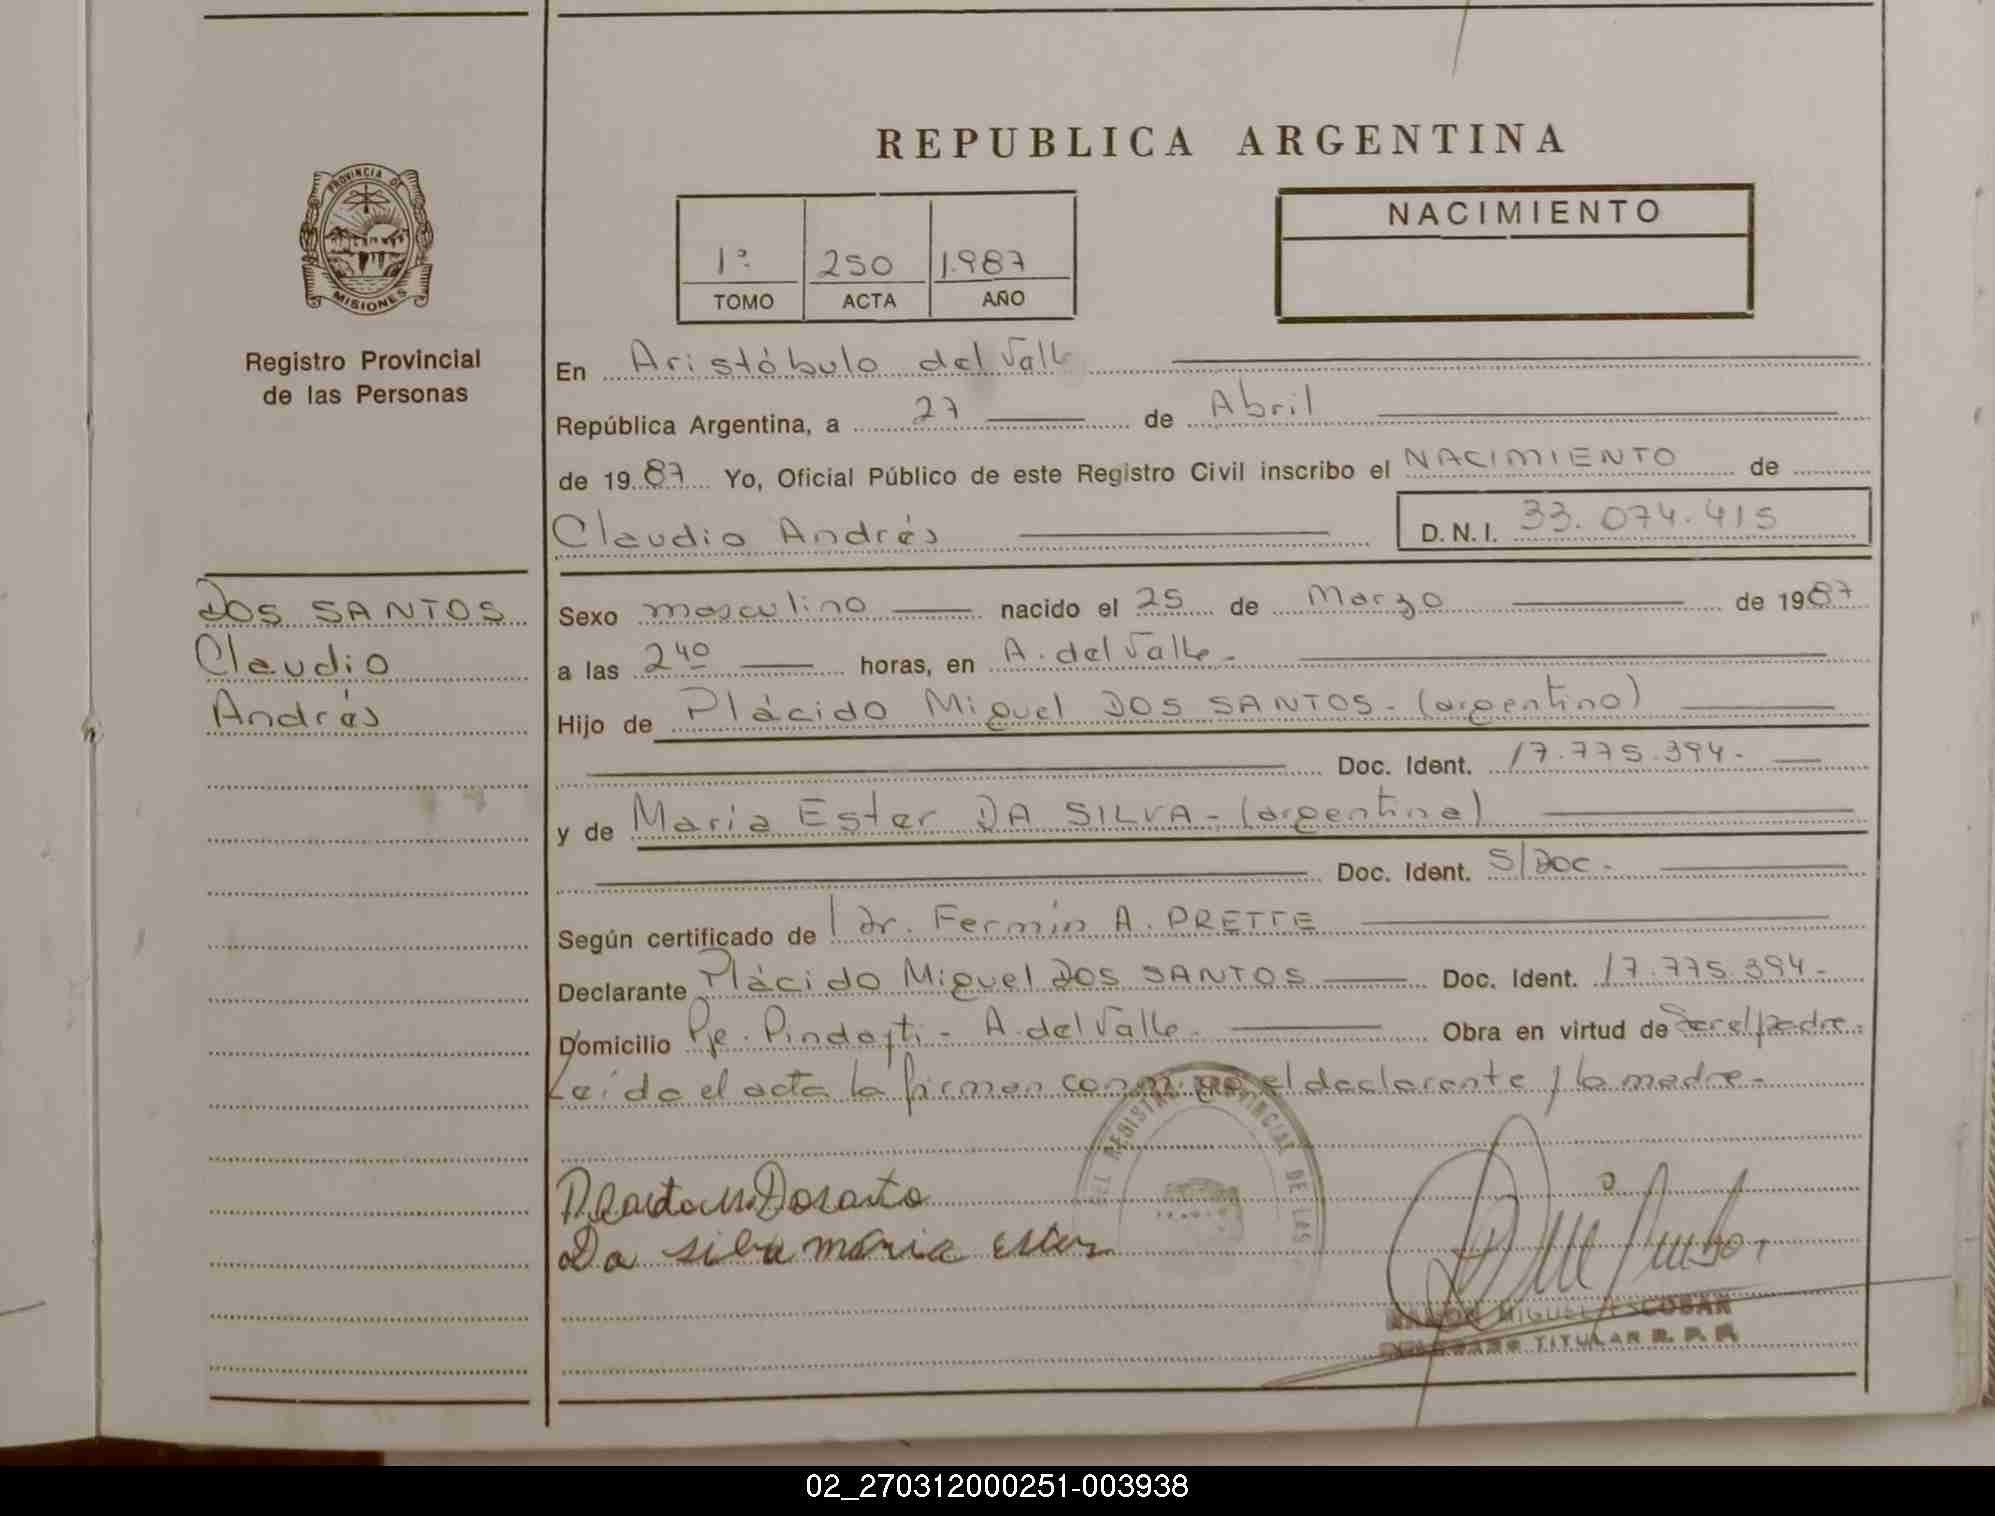 REPUBLICA ARGENTINA
PROVINCIA DE
MISIONES
Registro Provincial
de las Personas
1ª 250 1.987
TOMO ACTA AÑO
NACIMIENTO
En Aristóbulo del Valle
República Argentina, a 27 de Abril
de 1987 Yo, Oficial Público de este Registro Civil inscribo el NACIMIENTO de
Claudio Andrés D.N.I. 33.074.415
DOS SANTOS
Claudio
Andrés
Sexo masculino nacido el 25 de Marzo de 1987
a las 2 40 horas, en A. del Valle.
Hijo de Plácido Miguel DOS SANTOS - (argentino)
Doc. Ident. 17.775.394.
y de Maria Ester DA SILVA - (argentina)
Doc. Ident. S/Doc.
Según certificado de Dr. Fermín A. PRETTE
Declarante Plácido Miguel DOS SANTOS Doc. Ident. 17.775.394.
Domicilio Pje. A. del Valle. Obra en virtud de ser el padre.
Leída el acta la firman conmigo el declarante y la madre.
EL REGISTRO PROVINCIAL DE LAS
Da silva maria ester
MIGUEL ESCOBAR
TITULAR R. P. P.
02_270312000251-003938